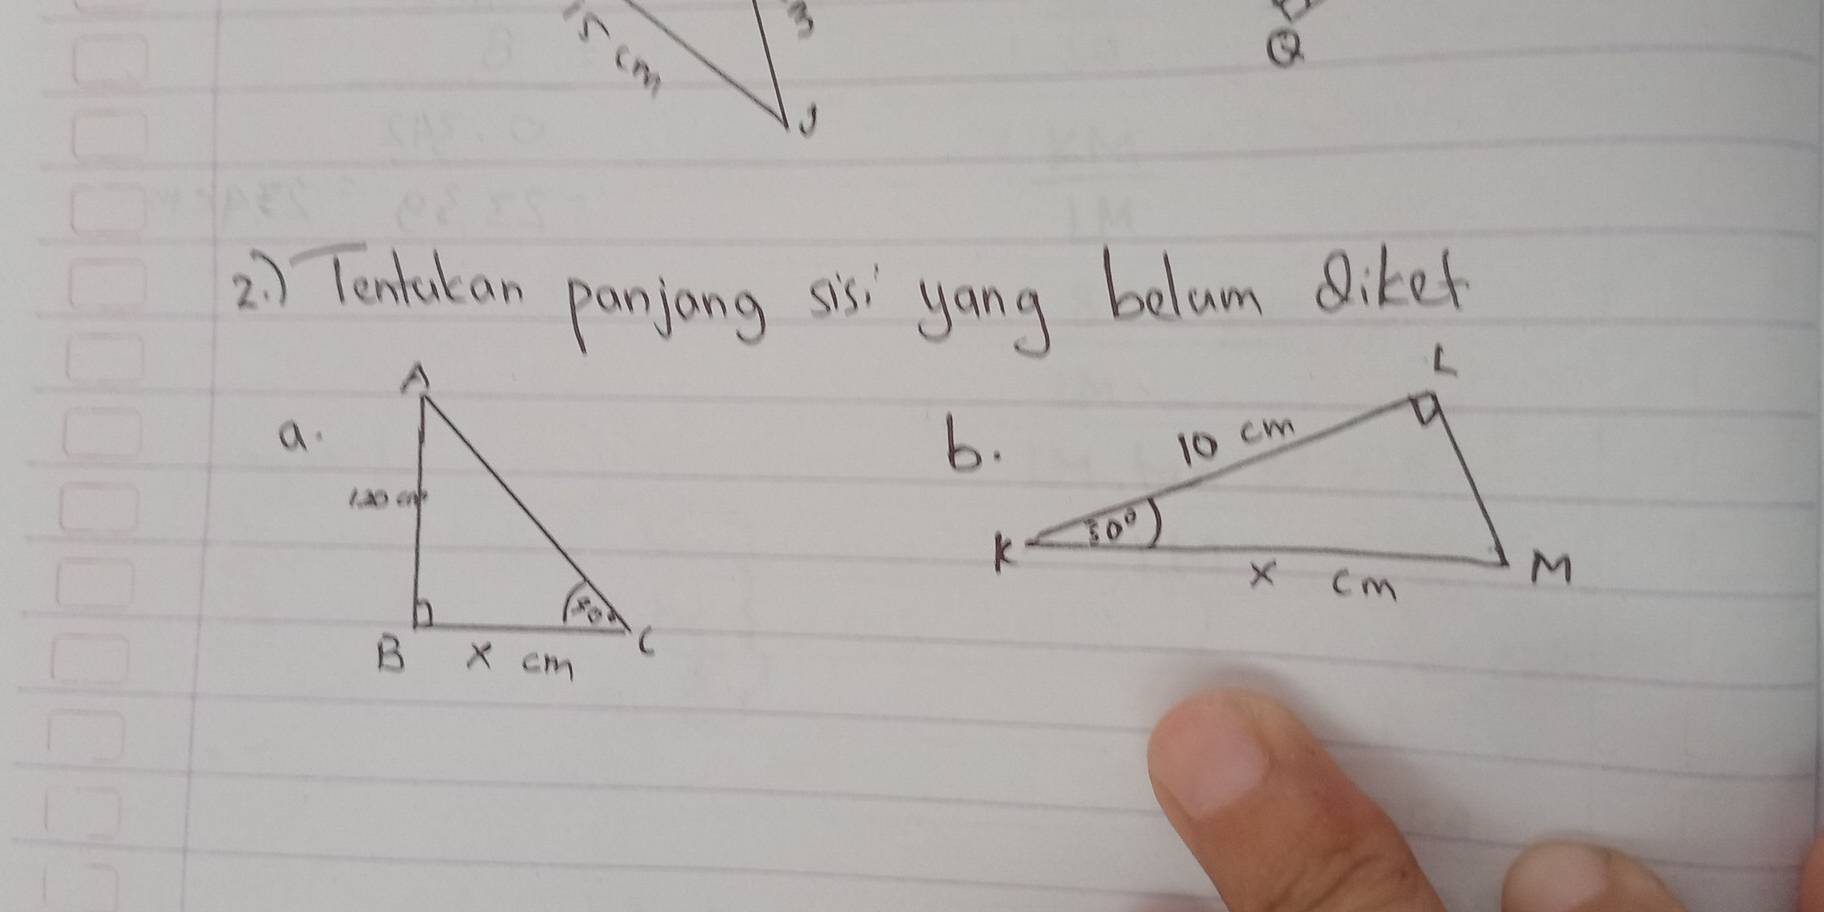 5 cm 3
J Q
2.) Tentukan panjang sisi yang belum diket
a. A
120 cm
B x cm C
b. L
10 cm
K 30° M
x cm